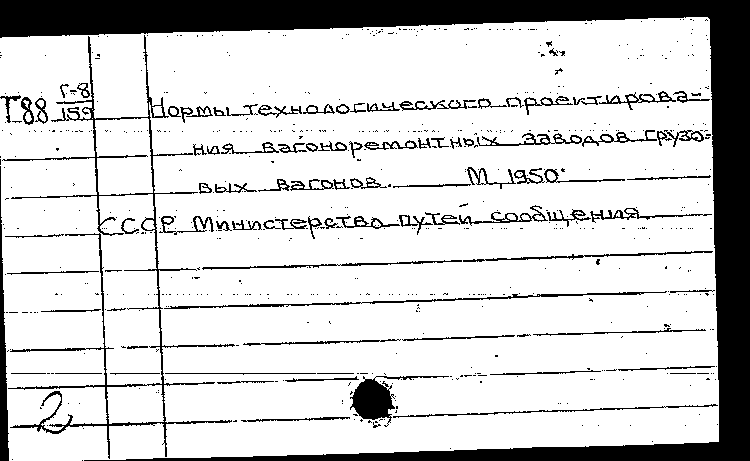 Т88 Г-8/159 Нормы технологического проектирова-
ния вагоноремонтных заводов грузо-
вых вагонов. М, 1950.
СССР. Министерство путей сообщения.
2